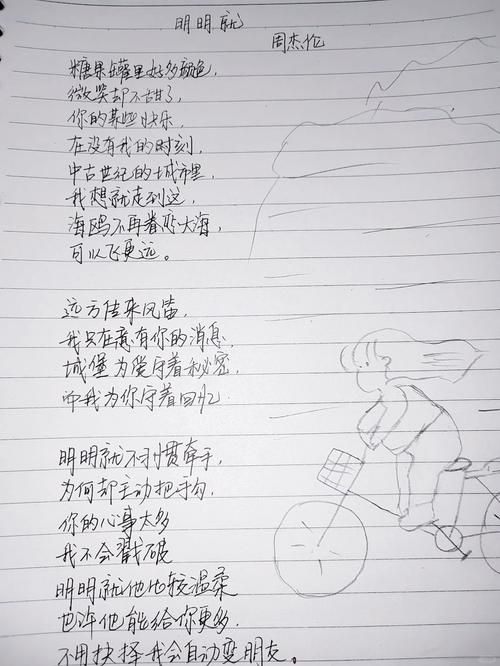 明明就
周杰伦
糖果罐里好多颜色,
微笑却不甜了,
你的某些快乐,
在没有我的时刻,
中古世纪的城市里,
我想就走到这,
海鸥不再眷恋大海,
可以飞更远。
远方传来风笛,
我只在意有你的消息,
城堡为爱守着秘密,
而我为你守着回忆.
明明就不习惯牵手,
为何却主动把手勾,
你的心事太多
我不会戳破
明明就他比较温柔
也许他能给你更多.
不用抉择我会自动变朋友。